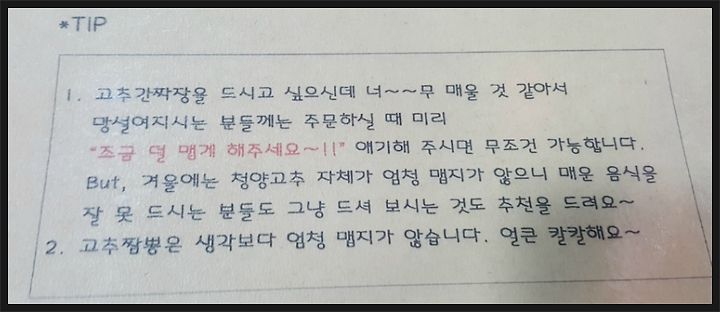 *TIP
1. 고추간짜장을 드시고 싶으신데 너~~무 매울 것 같아서
망설여지시는 분들께는 주문하실 때 미리
"조금 덜 맵게 해주세요~!!" 얘기해 주시면 무조건 가능합니다.
But, 겨울에는 청양고추 자체가 엄청 맵지가 않으니 매운 음식을
잘 못 드시는 분들도 그냥 드셔 보시는 것도 추천을 드려요~
2. 고추짬뽕은 생각보다 엄청 맵지가 않습니다. 얼큰 칼칼해요~